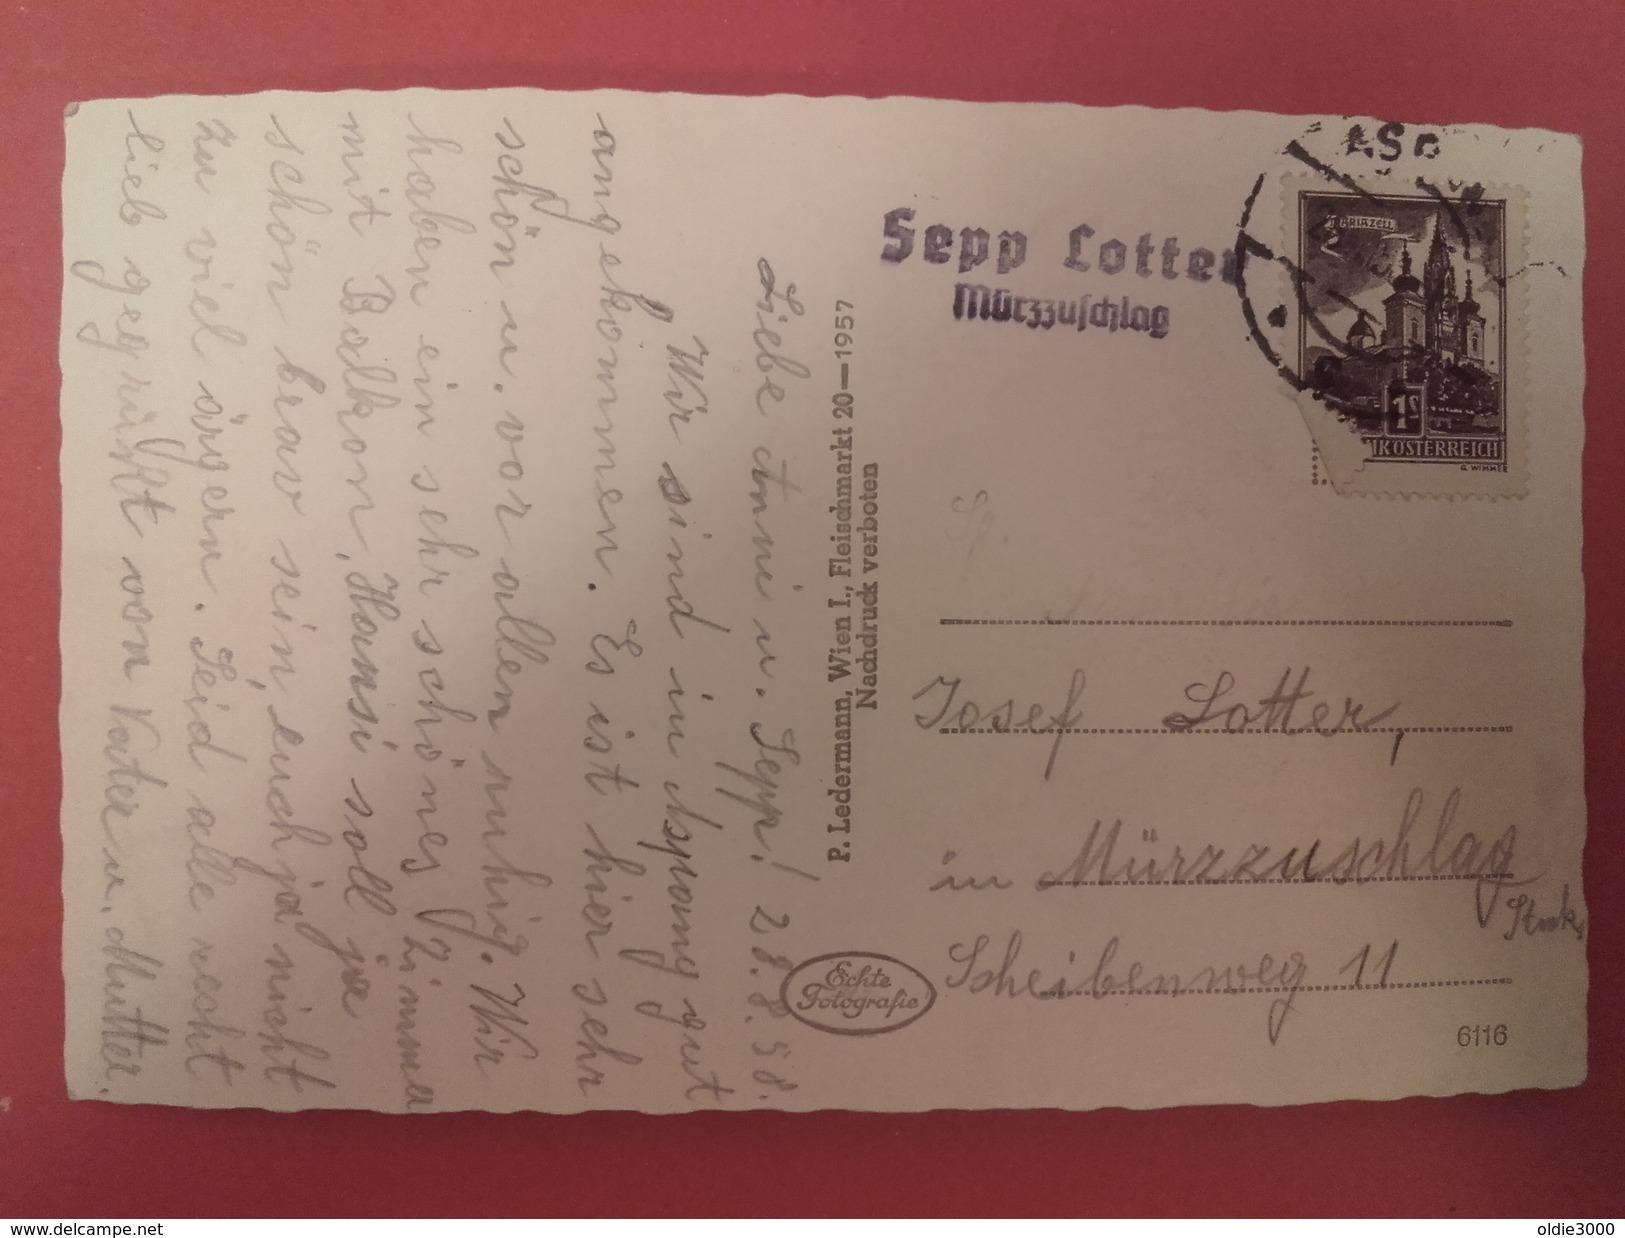 Liebe Anni u. Sepp! 28.8.58.
Wir sind in Aspang gut
angekommen. Es ist hier sehr
schön u. vor allem ruhig. Wir
haben ein sehr schönes Zimmer
mit Balkon, Hansi soll ja
schön brav sein, euch ja nicht
zu viel ärgern. Seid alle recht
lieb gegrüßt von Vater u. Mutter.
P. Ledermann, Wien I., Fleischmarkt 20—1957
Nachdruck verboten
Echte
Fotografie
Sepp Lotter
Mürzzuschlag
MARIAZELL
1S
REPUBLIK ÖSTERREICH
G. WIMMER
Josef Lotter,
in Mürzzuschlag
Stmk.
Scheibenweg 11
6116
www.delcampe.net
oldie3000